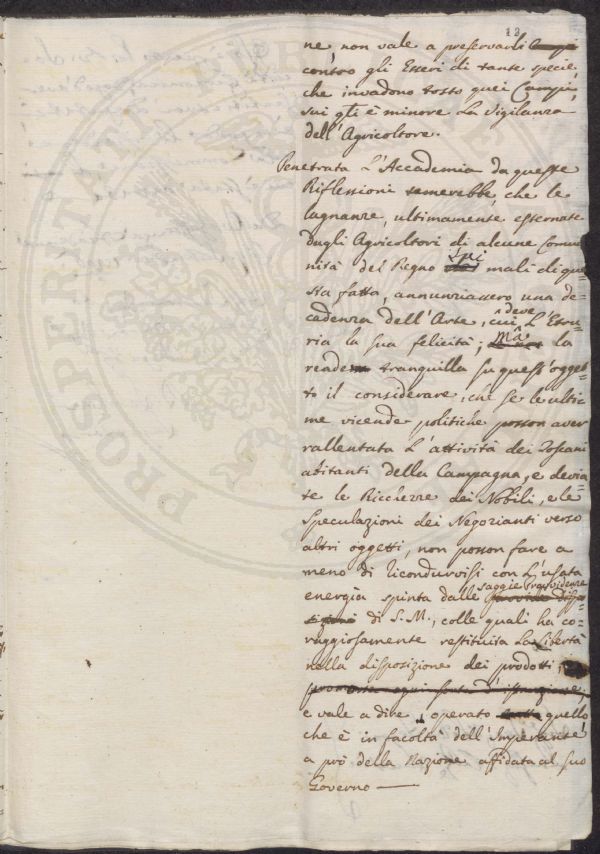 12
ne, non vale a preservarli
contro gli Esseri di tante specie,
che invadono tosto quei Campi,
sui qti è minore la vigilanza
dell'Agricoltore.
Penetrata l'Accademia da queste
Riflessioni temerebbe, che le
lagnanze, ultimamente esternate
dagli Agricoltori di alcune Comu
nità del Regno sui mali di que=
sta fatta, annunziassero una de=
cadenza dell'Arte, cui deve l'Etru
ria la sua felicità; mà la
rende tranquilla su quest'ogget=
to il considerare, che se le ulti=
me vicende politiche posson aver
rallentata l'attività dei Toscani
abitanti della Campagna, e devia=
te le Ricchezze dei Nobili, e le
speculazioni dei Negozianti verso
altri oggetti, non posson fare a
meno di ricondurvisi con l'usata
energia spinta dalle saggie Provvidenze
di S. M., colle quali ha co=
raggiosamente restituita la Libertà
nella disposizione dei prodotti,
e vale a dire, operato quello
che è in facoltà dell'Imperante
a prò della Nazione affidata al suo
Governo —
PROSPERITATI